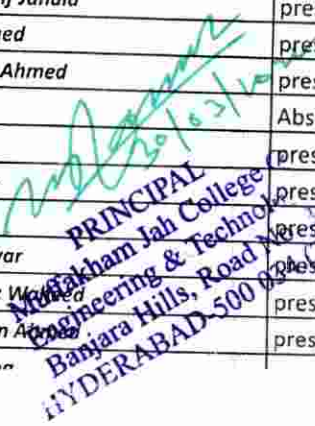 pre
ed pre
Ahmed pre
Abs
pres
pres
pres
var pres
pres
n Ahmed pres
30/03/
PRINCIPAL
Muffakham Jah College
Engineering & Technol
Banjara Hills, Road No
HYDERABAD-500 034